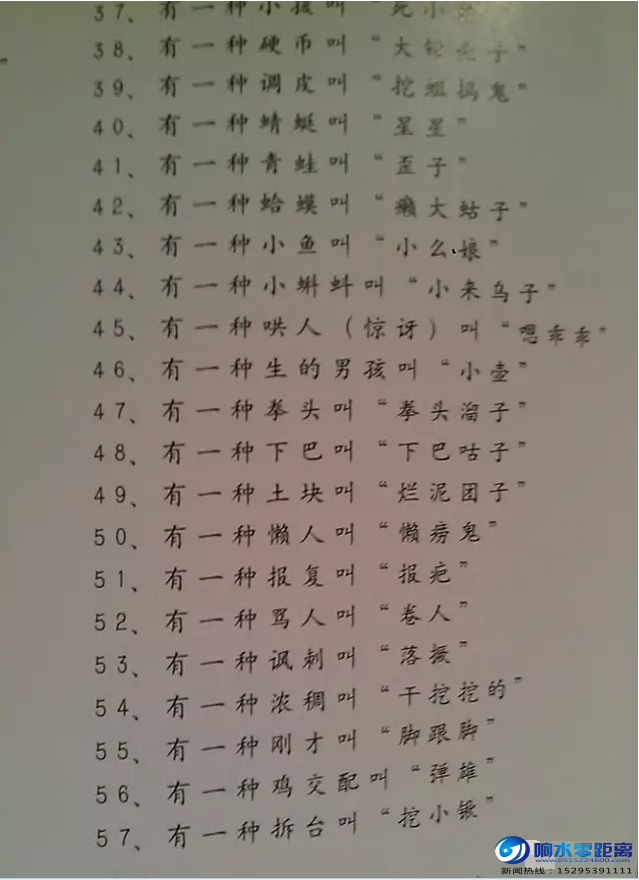 37、有一种小孩叫“死小
38、有一种硬币叫“大轮壳子”
39、有一种调皮叫“挖祖搞鬼”
40、有一种蜻蜓叫“星星”
41、有一种青蛙叫“歪子”
42、有一种蛤蟆叫“癞大蛄子”
43、有一种小鱼叫“小么娘”
44、有一种小蝌蚪叫“小来乌子”
45、有一种哄人（惊讶）叫“嗯乖乖”
46、有一种生的男孩叫“小壶”
47、有一种拳头叫“拳头溜子”
48、有一种下巴叫“下巴咕子”
49、有一种土块叫“烂泥团子”
50、有一种懒人叫“懒痨鬼”
51、有一种报复叫“报疤”
52、有一种骂人叫“卷人”
53、有一种讽刺叫“落振”
54、有一种浓稠叫“干挖挖的”
55、有一种刚才叫“脚跟脚”
56、有一种鸡交配叫“弹雄”
57、有一种拆台叫“挖小锹”
响水零距离
www.0515224600.com
新闻热线：15295391111